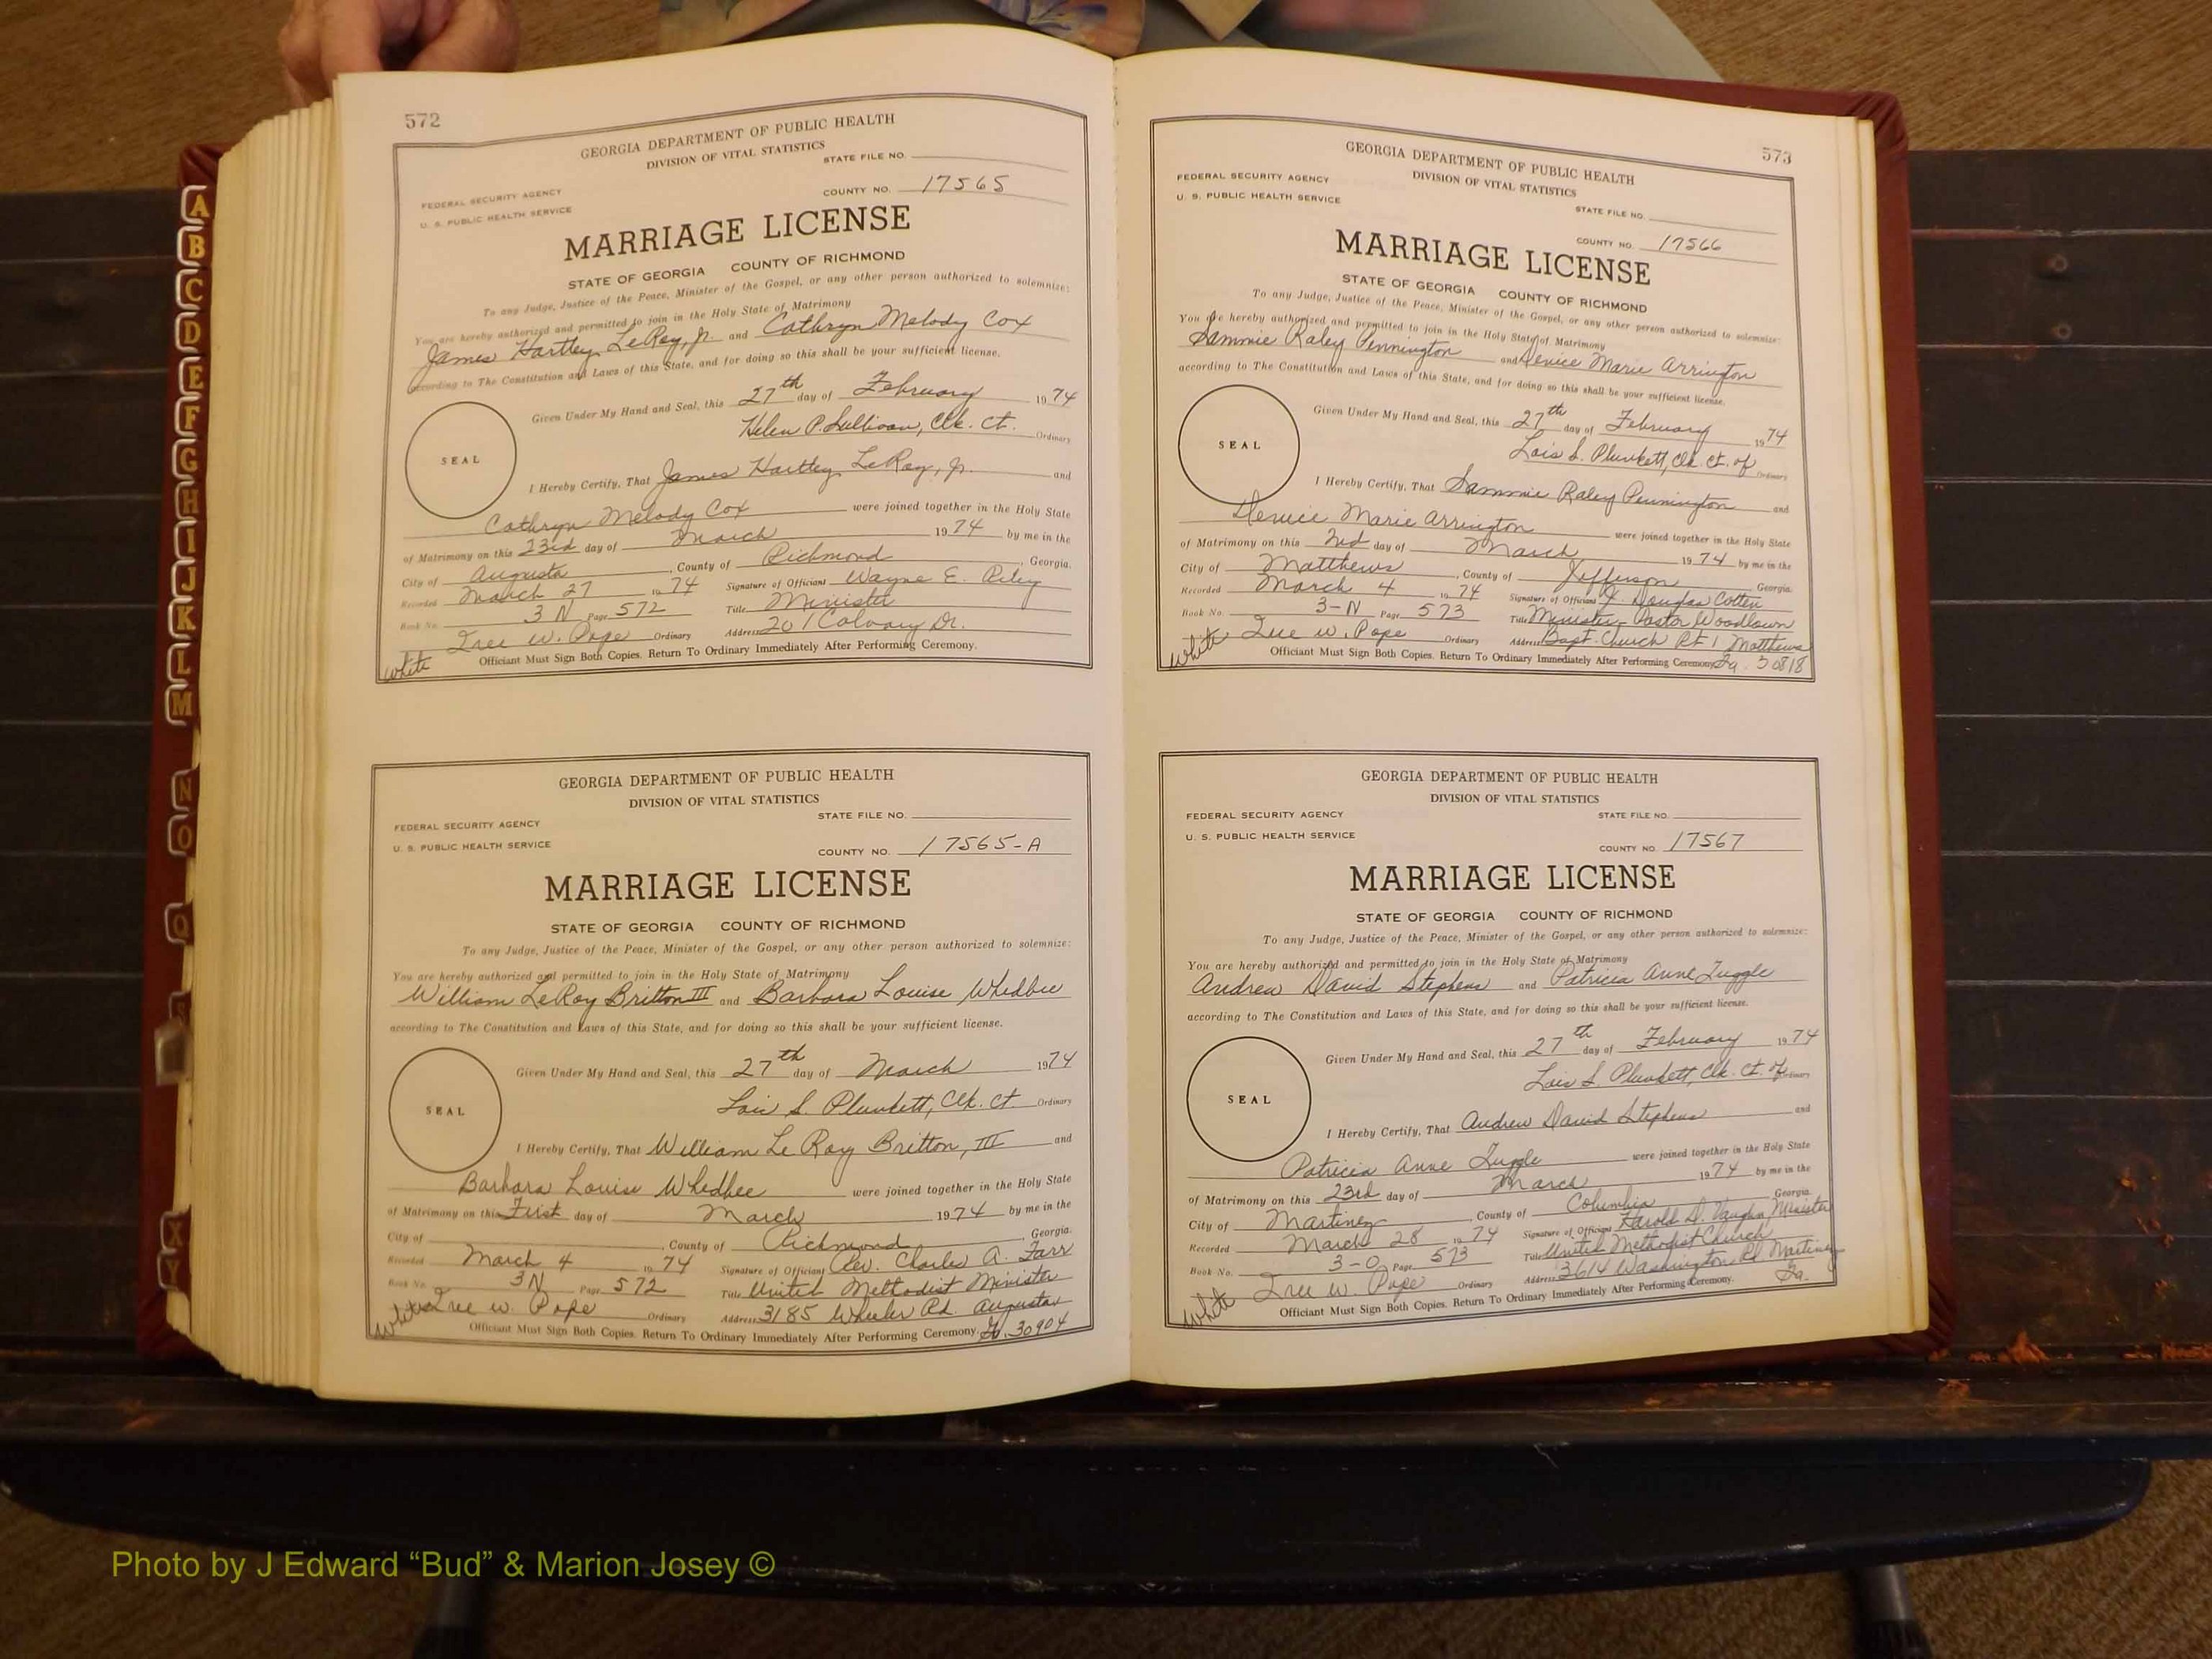 572
GEORGIA DEPARTMENT OF PUBLIC HEALTH
DIVISION OF VITAL STATISTICS
STATE FILE NO.
FEDERAL SECURITY AGENCY
U. S. PUBLIC HEALTH SERVICE
COUNTY NO. 17565
MARRIAGE LICENSE
STATE OF GEORGIA COUNTY OF RICHMOND
To any Judge, Justice of the Peace, Minister of the Gospel, or any other person authorized to solemnize:
You are hereby authorized and permitted to join in the Holy State of Matrimony
James Hartley LeRoy, Jr. and Cathryn Melody Cox
according to The Constitution and Laws of this State, and for doing so this shall be your sufficient license.
Given Under My Hand and Seal, this 27th day of February 1974
Helen P. Sullivan, Clk. Ct. Ordinary
SEAL
I Hereby Certify, That James Hartley LeRoy, Jr. and
Cathryn Melody Cox were joined together in the Holy State
of Matrimony on this 23rd day of March 1974 by me in the
City of Augusta, County of Richmond, Georgia.
Recorded March 27 1974 Signature of Officiant Wayne E. Riley
Book No. 3N Page 572 Title Minister
Iree W. Pope Ordinary Address 201 Calvary Dr.
white
Officiant Must Sign Both Copies. Return To Ordinary Immediately After Performing Ceremony.
GEORGIA DEPARTMENT OF PUBLIC HEALTH
DIVISION OF VITAL STATISTICS
STATE FILE NO.
FEDERAL SECURITY AGENCY
U. S. PUBLIC HEALTH SERVICE
COUNTY NO. 17565-A
MARRIAGE LICENSE
STATE OF GEORGIA COUNTY OF RICHMOND
To any Judge, Justice of the Peace, Minister of the Gospel, or any other person authorized to solemnize:
You are hereby authorized and permitted to join in the Holy State of Matrimony
William LeRoy Britton III and Barbara Louise Whedbee
according to The Constitution and Laws of this State, and for doing so this shall be your sufficient license.
Given Under My Hand and Seal, this 27th day of March 1974
Lois S. Plunkett, Clk. Ct. Ordinary
SEAL
I Hereby Certify, That William Le Roy Britton, III and
Barbara Louise Whedbee were joined together in the Holy State
of Matrimony on this First day of March 1974 by me in the
City of , County of Richmond, Georgia.
Recorded March 4 1974 Signature of Officiant Rev. Charles A. Farr
Book No. 3N Page 572 Title United Methodist Minister
white Iree W. Pope Ordinary Address 3185 Wheeler Rd. Augusta
Officiant Must Sign Both Copies. Return To Ordinary Immediately After Performing Ceremony. Ga. 30904
573
GEORGIA DEPARTMENT OF PUBLIC HEALTH
DIVISION OF VITAL STATISTICS
FEDERAL SECURITY AGENCY
U. S. PUBLIC HEALTH SERVICE
STATE FILE NO.
COUNTY NO. 17566
MARRIAGE LICENSE
STATE OF GEORGIA COUNTY OF RICHMOND
To any Judge, Justice of the Peace, Minister of the Gospel, or any other person authorized to solemnize:
You are hereby authorized and permitted to join in the Holy State of Matrimony
Sammie Raley Pennington and Denice Marie Arrington
according to The Constitution and Laws of this State, and for doing so this shall be your sufficient license.
Given Under My Hand and Seal, this 27th day of February 1974
Lois S. Plunkett, Clk. Ct. of Ordinary
SEAL
I Hereby Certify, That Sammie Raley Pennington and
Denice Marie Arrington were joined together in the Holy State
of Matrimony on this 2nd day of March 1974 by me in the
City of Matthews, County of Jefferson Georgia.
Recorded March 4 1974 Signature of Officiant Douglas Cotten
Book No. 3-N Page 573 Title Minister-Pastor Woodlawn
white Iree W. Pope Ordinary Address Bapt. Church Rt 1 Matthews
Officiant Must Sign Both Copies. Return To Ordinary Immediately After Performing Ceremony. Ga. 30818
GEORGIA DEPARTMENT OF PUBLIC HEALTH
DIVISION OF VITAL STATISTICS
FEDERAL SECURITY AGENCY
STATE FILE NO.
U. S. PUBLIC HEALTH SERVICE
COUNTY NO. 17567
MARRIAGE LICENSE
STATE OF GEORGIA COUNTY OF RICHMOND
To any Judge, Justice of the Peace, Minister of the Gospel, or any other person authorized to solemnize:
You are hereby authorized and permitted to join in the Holy State of Matrimony
Andrew David Stephens and Patricia Anne Tuggle
according to The Constitution and Laws of this State, and for doing so this shall be your sufficient license.
Given Under My Hand and Seal, this 27th day of February 1974
Lois S. Plunkett, Clk. Ct. of Ordinary
SEAL
I Hereby Certify, That Andrew David Stephens and
Patricia Anne Tuggle were joined together in the Holy State
of Matrimony on this 23rd day of March 1974 by me in the
City of Martinez, County of Columbia Georgia.
Recorded March 28 1974 Signature of Officiant Harold D. Vaughn, Minister
Book No. 3-O Page 573 Title United Methodist Church
Iree W. Pope Ordinary Address 3614 Washington Rd Martinez
white
Officiant Must Sign Both Copies. Return To Ordinary Immediately After Performing Ceremony. Ga.
A
B
C
D
E
F
G
H
I
J
K
L
M
N
O
Q
S
X
Y
Photo by J Edward “Bud” & Marion Josey ©